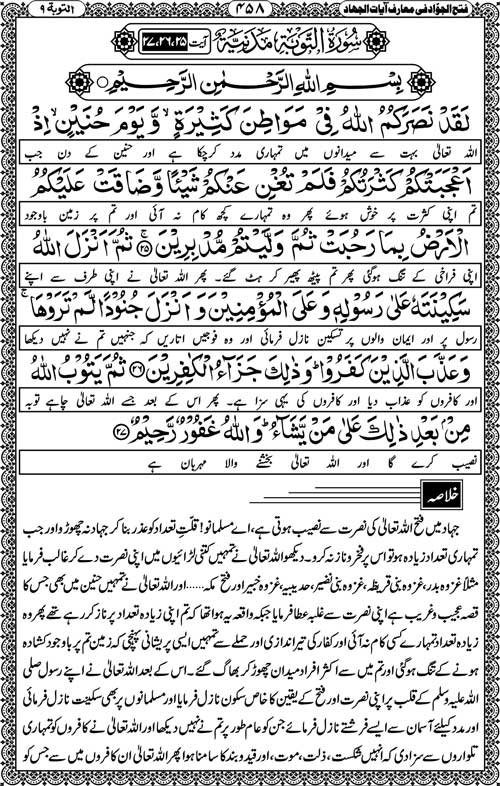 فتح الجوّاد فی معارف آیات الجہاد ۴۵۸ التوبۃ ۹
سُوْرَۃُ التَّوْبَۃِ مَدَنِیَّۃٌ آیت ۲۵، ۲۶، ۲۷
بِسْمِ اللّٰہِ الرَّحْمٰنِ الرَّحِیْمِ
لَقَدْ نَصَرَکُمُ اللّٰہُ فِیْ مَوَاطِنَ کَثِیْرَۃٍ وَّ یَوْمَ حُنَیْنٍ اِذْ
اللہ تعالیٰ بہت سے میدانوں میں تمہاری مدد کرچکا ہے اور حنین کے دن جب
اَعْجَبَتْکُمْ کَثْرَتُکُمْ فَلَمْ تُغْنِ عَنْکُمْ شَیْئًا وَّ ضَاقَتْ عَلَیْکُمُ
تم اپنی کثرت پر خوش ہوئے پھر وہ تمہارے کچھ کام نہ آئی اور تم پر زمین باوجود
الْاَرْضُ بِمَا رَحُبَتْ ثُمَّ وَلَّیْتُمْ مُّدْبِرِیْنَ ﴿۲۵﴾ ثُمَّ اَنْزَلَ اللّٰہُ
اپنی فراخی کے تنگ ہوگئی پھر تم پیٹھ پھیر کر ہٹ گئے۔ پھر اللہ تعالیٰ نے اپنی طرف سے اپنے
سَکِیْنَتَہٗ عَلٰی رَسُوْلِہٖ وَ عَلَی الْمُؤْمِنِیْنَ وَ اَنْزَلَ جُنُوْدًا لَّمْ تَرَوْہَا ۚ
رسول پر اور ایمان والوں پر تسکین نازل فرمائی اور وہ فوجیں اتاریں کہ جنہیں تم نے نہیں دیکھا
وَ عَذَّبَ الَّذِیْنَ کَفَرُوْا ؕ وَ ذٰلِکَ جَزَآءُ الْکٰفِرِیْنَ ﴿۲۶﴾ ثُمَّ یَتُوْبُ اللّٰہُ
اور کافروں کو عذاب دیا اور کافروں کی یہی سزا ہے۔ پھر اس کے بعد جسے اللہ تعالیٰ چاہے توبہ
مِنْۢ بَعْدِ ذٰلِکَ عَلٰی مَنْ یَّشَآءُ ؕ وَ اللّٰہُ غَفُوْرٌ رَّحِیْمٌ ﴿۲۷﴾
نصیب کرے گا اور اللہ تعالیٰ بخشنے والا مہربان ہے
خلاصہ
جہاد میں فتح اللہ تعالیٰ کی نصرت سے نصیب ہوتی ہے، اے مسلمانو! قلّتِ تعداد کو عذر بنا کر جہاد نہ چھوڑو اور جب
تمہاری تعداد زیادہ ہو تو اس پر فخر و ناز نہ کرو۔ دیکھو اللہ تعالیٰ نے تمہیں کتنی لڑائیوں میں اپنی نصرت دے کر غالب فرمایا
مثلاً غزوہ بدر، غزوہ بنی قریظہ، غزوہ بنی نضیر، حدیبیہ، غزوہ خیبر اور فتح مکہ...... اور اللہ تعالیٰ نے تمہیں حنین میں بھی جس کا
قصہ عجیب و غریب ہے اپنی نصرت سے غلبہ عطا فرمایا جبکہ واقعہ یہ ہوا تھا کہ تم اپنی زیادہ تعداد پر ناز کر رہے تھے پھر وہ
زیادہ تعداد تمہارے کسی کام نہ آئی اور کفار کی تیراندازی اور حملے سے تمہیں ایسی پریشانی پہنچی کہ زمین تم پر باوجود کشادہ
ہونے کے تنگ ہوگئی اور تم میں سے اکثر افراد میدان چھوڑ کر بھاگ گئے۔ اس کے بعد اللہ تعالیٰ نے اپنے رسول صلی
اللہ علیہ وسلم کے قلب پر اپنی نصرت اور فتح کے یقین کا خاص سکون نازل فرمایا اور مسلمانوں پر بھی سکینت نازل فرمائی
اور مدد کیلئے آسمان سے ایسے فرشتے نازل فرمائے جن کو عام طور پر تم نے نہیں دیکھا اور اللہ تعالیٰ نے کافروں کو تمہاری
تلواروں سے سزا دی کہ انہیں شکست، ذلت، موت، اور قید و بند کا سامنا ہوا پھر اللہ تعالیٰ ان کافروں میں سے جس کو